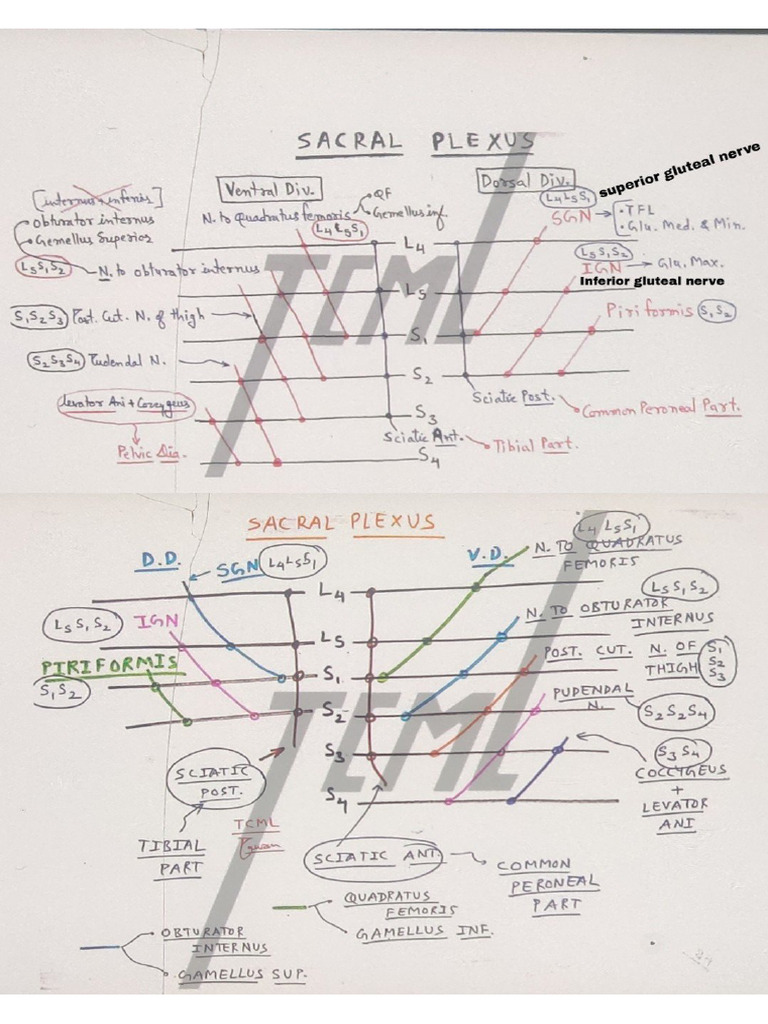 SACRAL PLEXUS
superior gluteal nerve
[internus + inferis]
Obturator internus
Gemellus Superios
Ventral Div.
QF
N. to Quadratus femoris
Gemellus inf.
L4 L5 S1
Dorsal Div.
L4 L5 S1
SGN
• TFL
• Glu. Med. & Min.
L4
L5 S1 S2
N. to obturator internus
L5 S1 S2
IGN
Glu. Max.
Inferior gluteal nerve
L5
S1 S2 S3
Post. Cut. N. of thigh
S1
Piriformis
S1 S2
S2 S3 S4
Pudendal N.
S2
Sciatic Post.
Common Peroneal Part.
levator Ani + Coccygeus
S3
Sciatic Ant.
Tibial Part.
Pelvic Dia.
S4
TCML
SACRAL PLEXUS
D.D.
SGN
L4 L5 S1
V.D.
L4 L5 S1
N. TO QUADRATUS
FEMORIS
L4
L5 S1 S2
L5 S1 S2
IGN
N. TO OBTURATOR
INTERNUS
L5
PIRIFORMIS
S1 S2
S1
POST. CUT. N. OF
THIGH
S1
S2
S3
S2
PUDENDAL
N.
S2 S2 S4
S3
S3 S4
COCCYGEUS
+
LEVATOR
ANI
SCIATIC
POST.
S4
TCML
TCML
TIBIAL
PART
SCIATIC ANT.
COMMON
PERONEAL
PART
QUADRATUS
FEMORIS
GAMELLUS INF.
OBTURATOR
INTERNUS
GAMELLUS SUP.